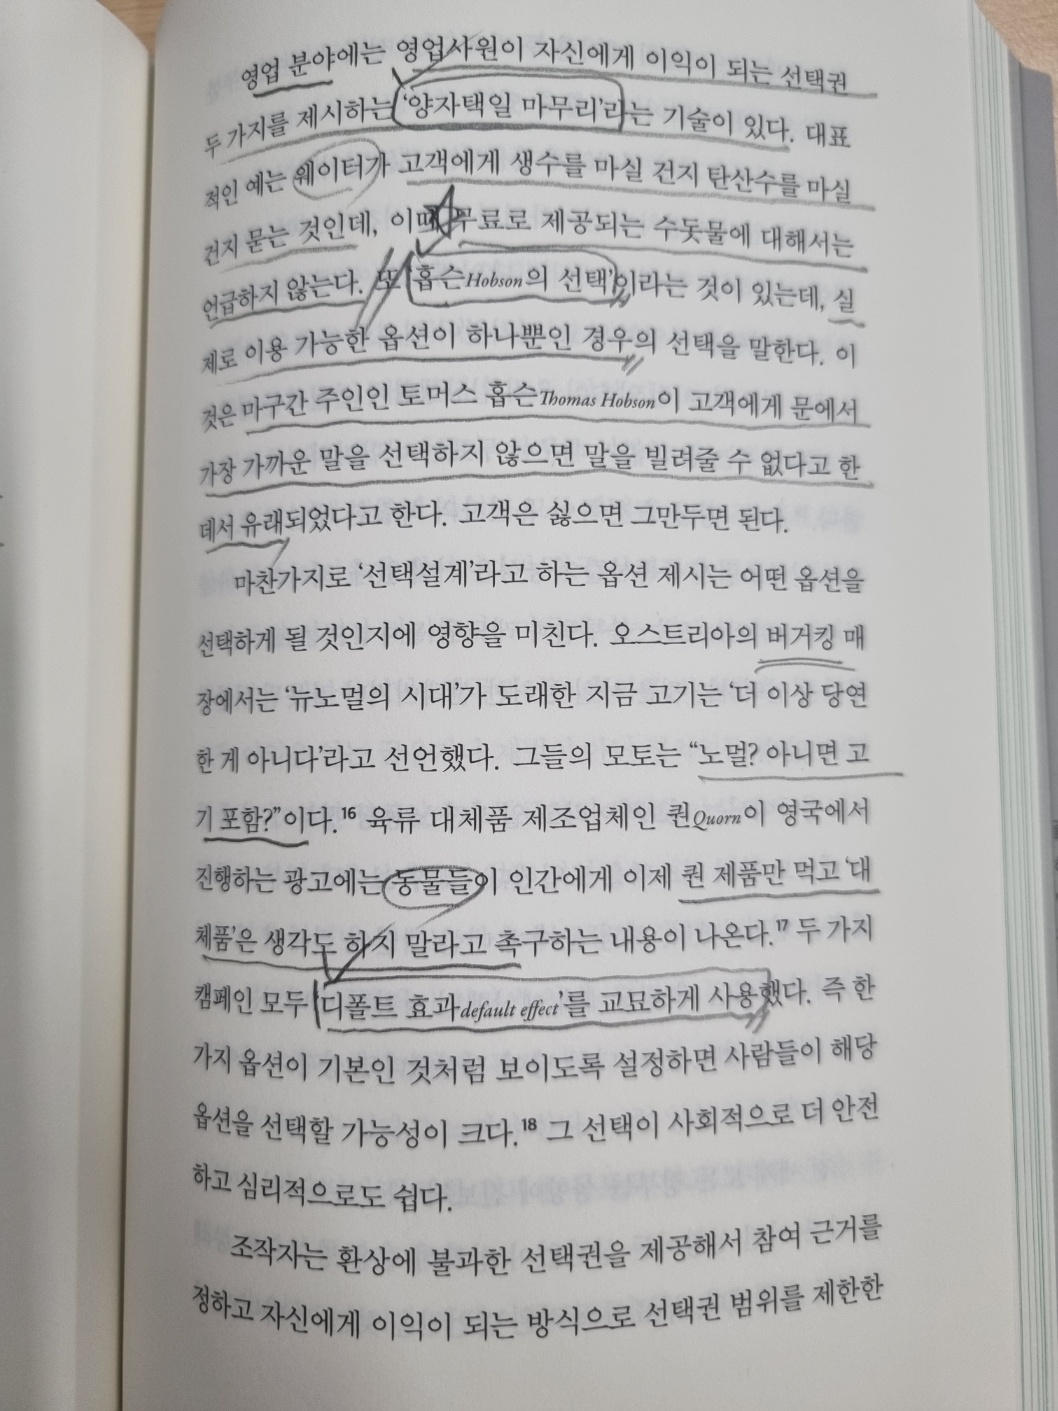 영업 분야에는 영업사원이 자신에게 이익이 되는 선택권
두 가지를 제시하는 ‘양자택일 마무리’라는 기술이 있다. 대표
적인 예는 웨이터가 고객에게 생수를 마실 건지 탄산수를 마실
건지 묻는 것인데, 이때 무료로 제공되는 수돗물에 대해서는
언급하지 않는다. 또 ‘홉슨Hobson의 선택’이라는 것이 있는데, 실
제로 이용 가능한 옵션이 하나뿐인 경우의 선택을 말한다. 이
것은 마구간 주인인 토머스 홉슨Thomas Hobson이 고객에게 문에서
가장 가까운 말을 선택하지 않으면 말을 빌려줄 수 없다고 한
데서 유래되었다고 한다. 고객은 싫으면 그만두면 된다.
마찬가지로 ‘선택설계’라고 하는 옵션 제시는 어떤 옵션을
선택하게 될 것인지에 영향을 미친다. 오스트리아의 버거킹 매
장에서는 ‘뉴노멀의 시대’가 도래한 지금 고기는 ‘더 이상 당연
한 게 아니다’라고 선언했다. 그들의 모토는 “노멀? 아니면 고
기 포함?”이다.¹⁶ 육류 대체품 제조업체인 퀀Quorn이 영국에서
진행하는 광고에는 동물들이 인간에게 이제 퀀 제품만 먹고 ‘대
체품’은 생각도 하지 말라고 촉구하는 내용이 나온다.¹⁷ 두 가지
캠페인 모두 ‘디폴트 효과default effect’를 교묘하게 사용했다. 즉 한
가지 옵션이 기본인 것처럼 보이도록 설정하면 사람들이 해당
옵션을 선택할 가능성이 크다.¹⁸ 그 선택이 사회적으로 더 안전
하고 심리적으로도 쉽다.
조작자는 환상에 불과한 선택권을 제공해서 참여 근거를
정하고 자신에게 이익이 되는 방식으로 선택권 범위를 제한한